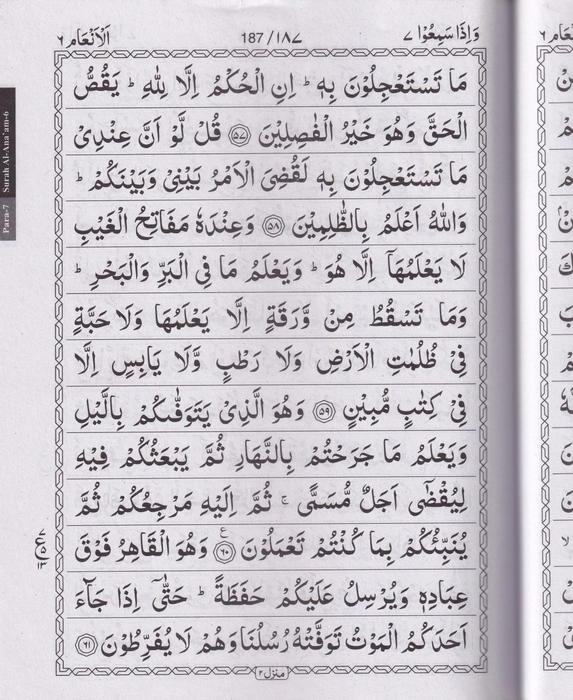 اَلْاَنْعَام ٦
187/١٨٧
وَاِذَا سَمِعُوْا ٧
مَا تَسْتَعْجِلُوْنَ بِهٖ ؕ اِنِ الْحُكْمُ اِلَّا لِلّٰهِ ؕ يَقُصُّ
الْحَقَّ وَهُوَ خَيْرُ الْفٰصِلِيْنَ ﴿۵۷﴾ قُلْ لَّوْ اَنَّ عِنْدِيْ
مَا تَسْتَعْجِلُوْنَ بِهٖ لَقُضِيَ الْاَمْرُ بَيْنِيْ وَبَيْنَكُمْ ؕ
وَاللّٰهُ اَعْلَمُ بِالظّٰلِمِيْنَ ﴿۵۸﴾ وَعِنْدَهٗ مَفَاتِحُ الْغَيْبِ
لَا يَعْلَمُهَاۤ اِلَّا هُوَ ؕ وَيَعْلَمُ مَا فِي الْبَرِّ وَالْبَحْرِ ؕ
وَمَا تَسْقُطُ مِنْ وَّرَقَةٍ اِلَّا يَعْلَمُهَا وَلَا حَبَّةٍ
فِيْ ظُلُمٰتِ الْاَرْضِ وَلَا رَطْبٍ وَّلَا يَابِسٍ اِلَّا
فِيْ كِتٰبٍ مُّبِيْنٍ ﴿۵۹﴾ وَهُوَ الَّذِيْ يَتَوَفّٰىكُمْ بِالَّيْلِ
وَيَعْلَمُ مَا جَرَحْتُمْ بِالنَّهَارِ ثُمَّ يَبْعَثُكُمْ فِيْهِ
لِيُقْضٰۤى اَجَلٌ مُّسَمًّى ۚ ثُمَّ اِلَيْهِ مَرْجِعُكُمْ ثُمَّ
يُنَبِّئُكُمْ بِمَا كُنْتُمْ تَعْمَلُوْنَ ﴿۶۰﴾ ع وَهُوَ الْقَاهِرُ فَوْقَ
عِبَادِهٖ وَيُرْسِلُ عَلَيْكُمْ حَفَظَةً ؕ حَتّٰۤى اِذَا جَآءَ
اَحَدَكُمُ الْمَوْتُ تَوَفَّتْهُ رُسُلُنَا وَهُمْ لَا يُفَرِّطُوْنَ ﴿۶۱﴾
منزل ٢
Surah Al-Ana'am-6
Para-7